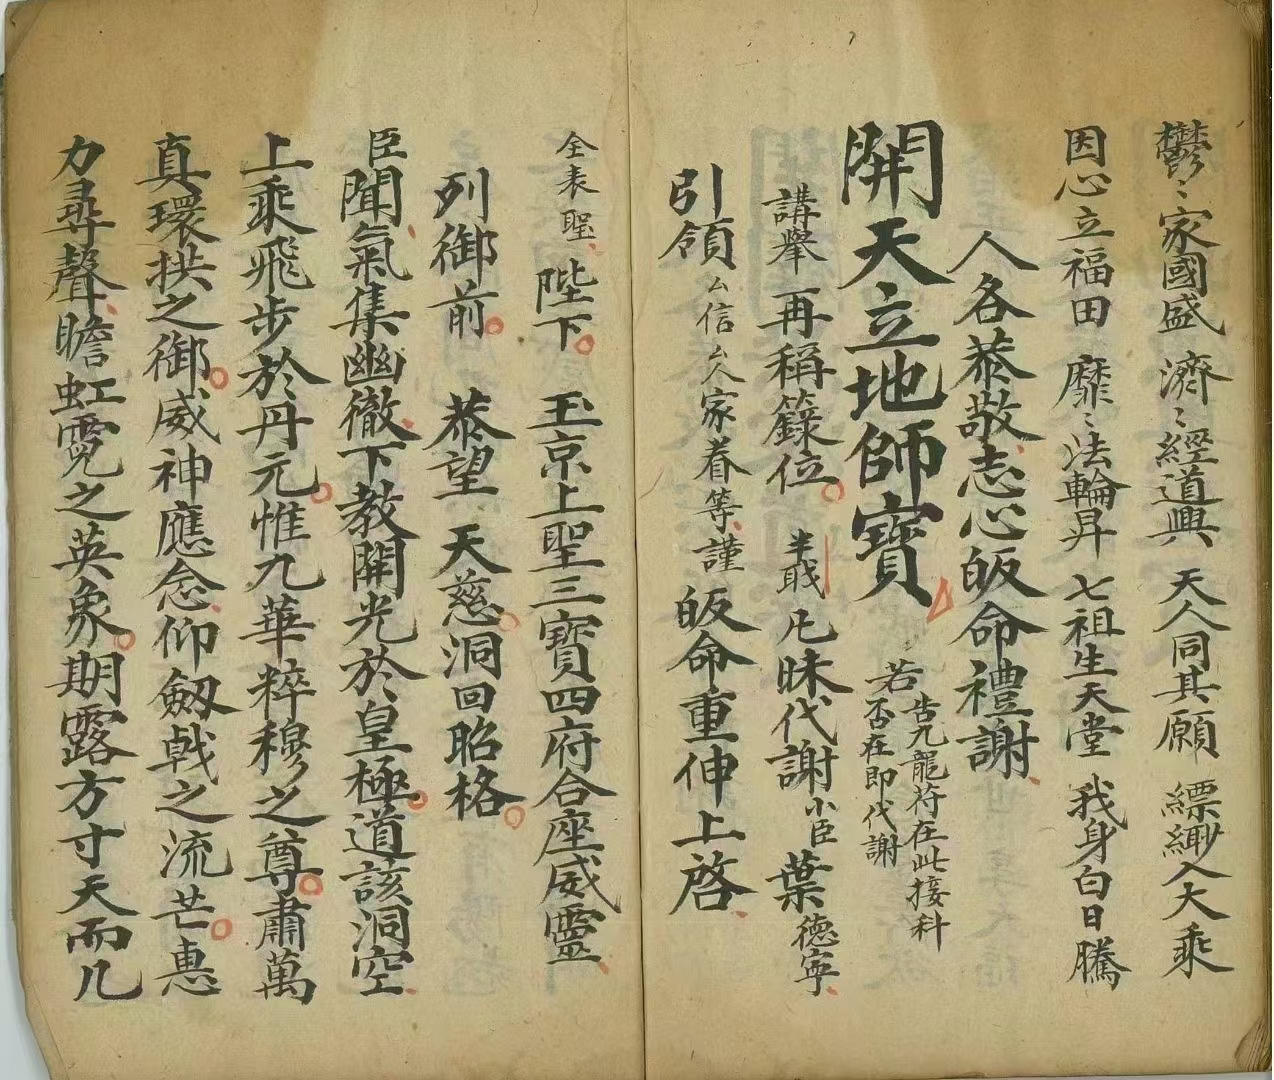 欝〻家國盛 濟〻經道興 天人同其願 縹緲入大乘
因心立福田 靡〻法輪昇 七祖生天堂 我身白日騰
人各恭敬志心皈命禮謝
開天立地師寶
若告九龍符在此接科
否在即代謝
講舉 再稱籙位 半戢 凡昧代謝 小臣 葉德寧
引領 厶信厶人家眷等謹 皈命重伸上啓
全表聖 陛下 玉京上聖三寶四府合座威靈
列御前 恭望 天慈洞回昭格
臣聞氣集幽徹下教開光於皇極道該洞空
上乘飛步於丹元惟九華粹穆之尊肅萬
真環拱之御威神應念仰劔戟之流芒惠
力尋聲瞻虹霓之英象期露方寸天而几